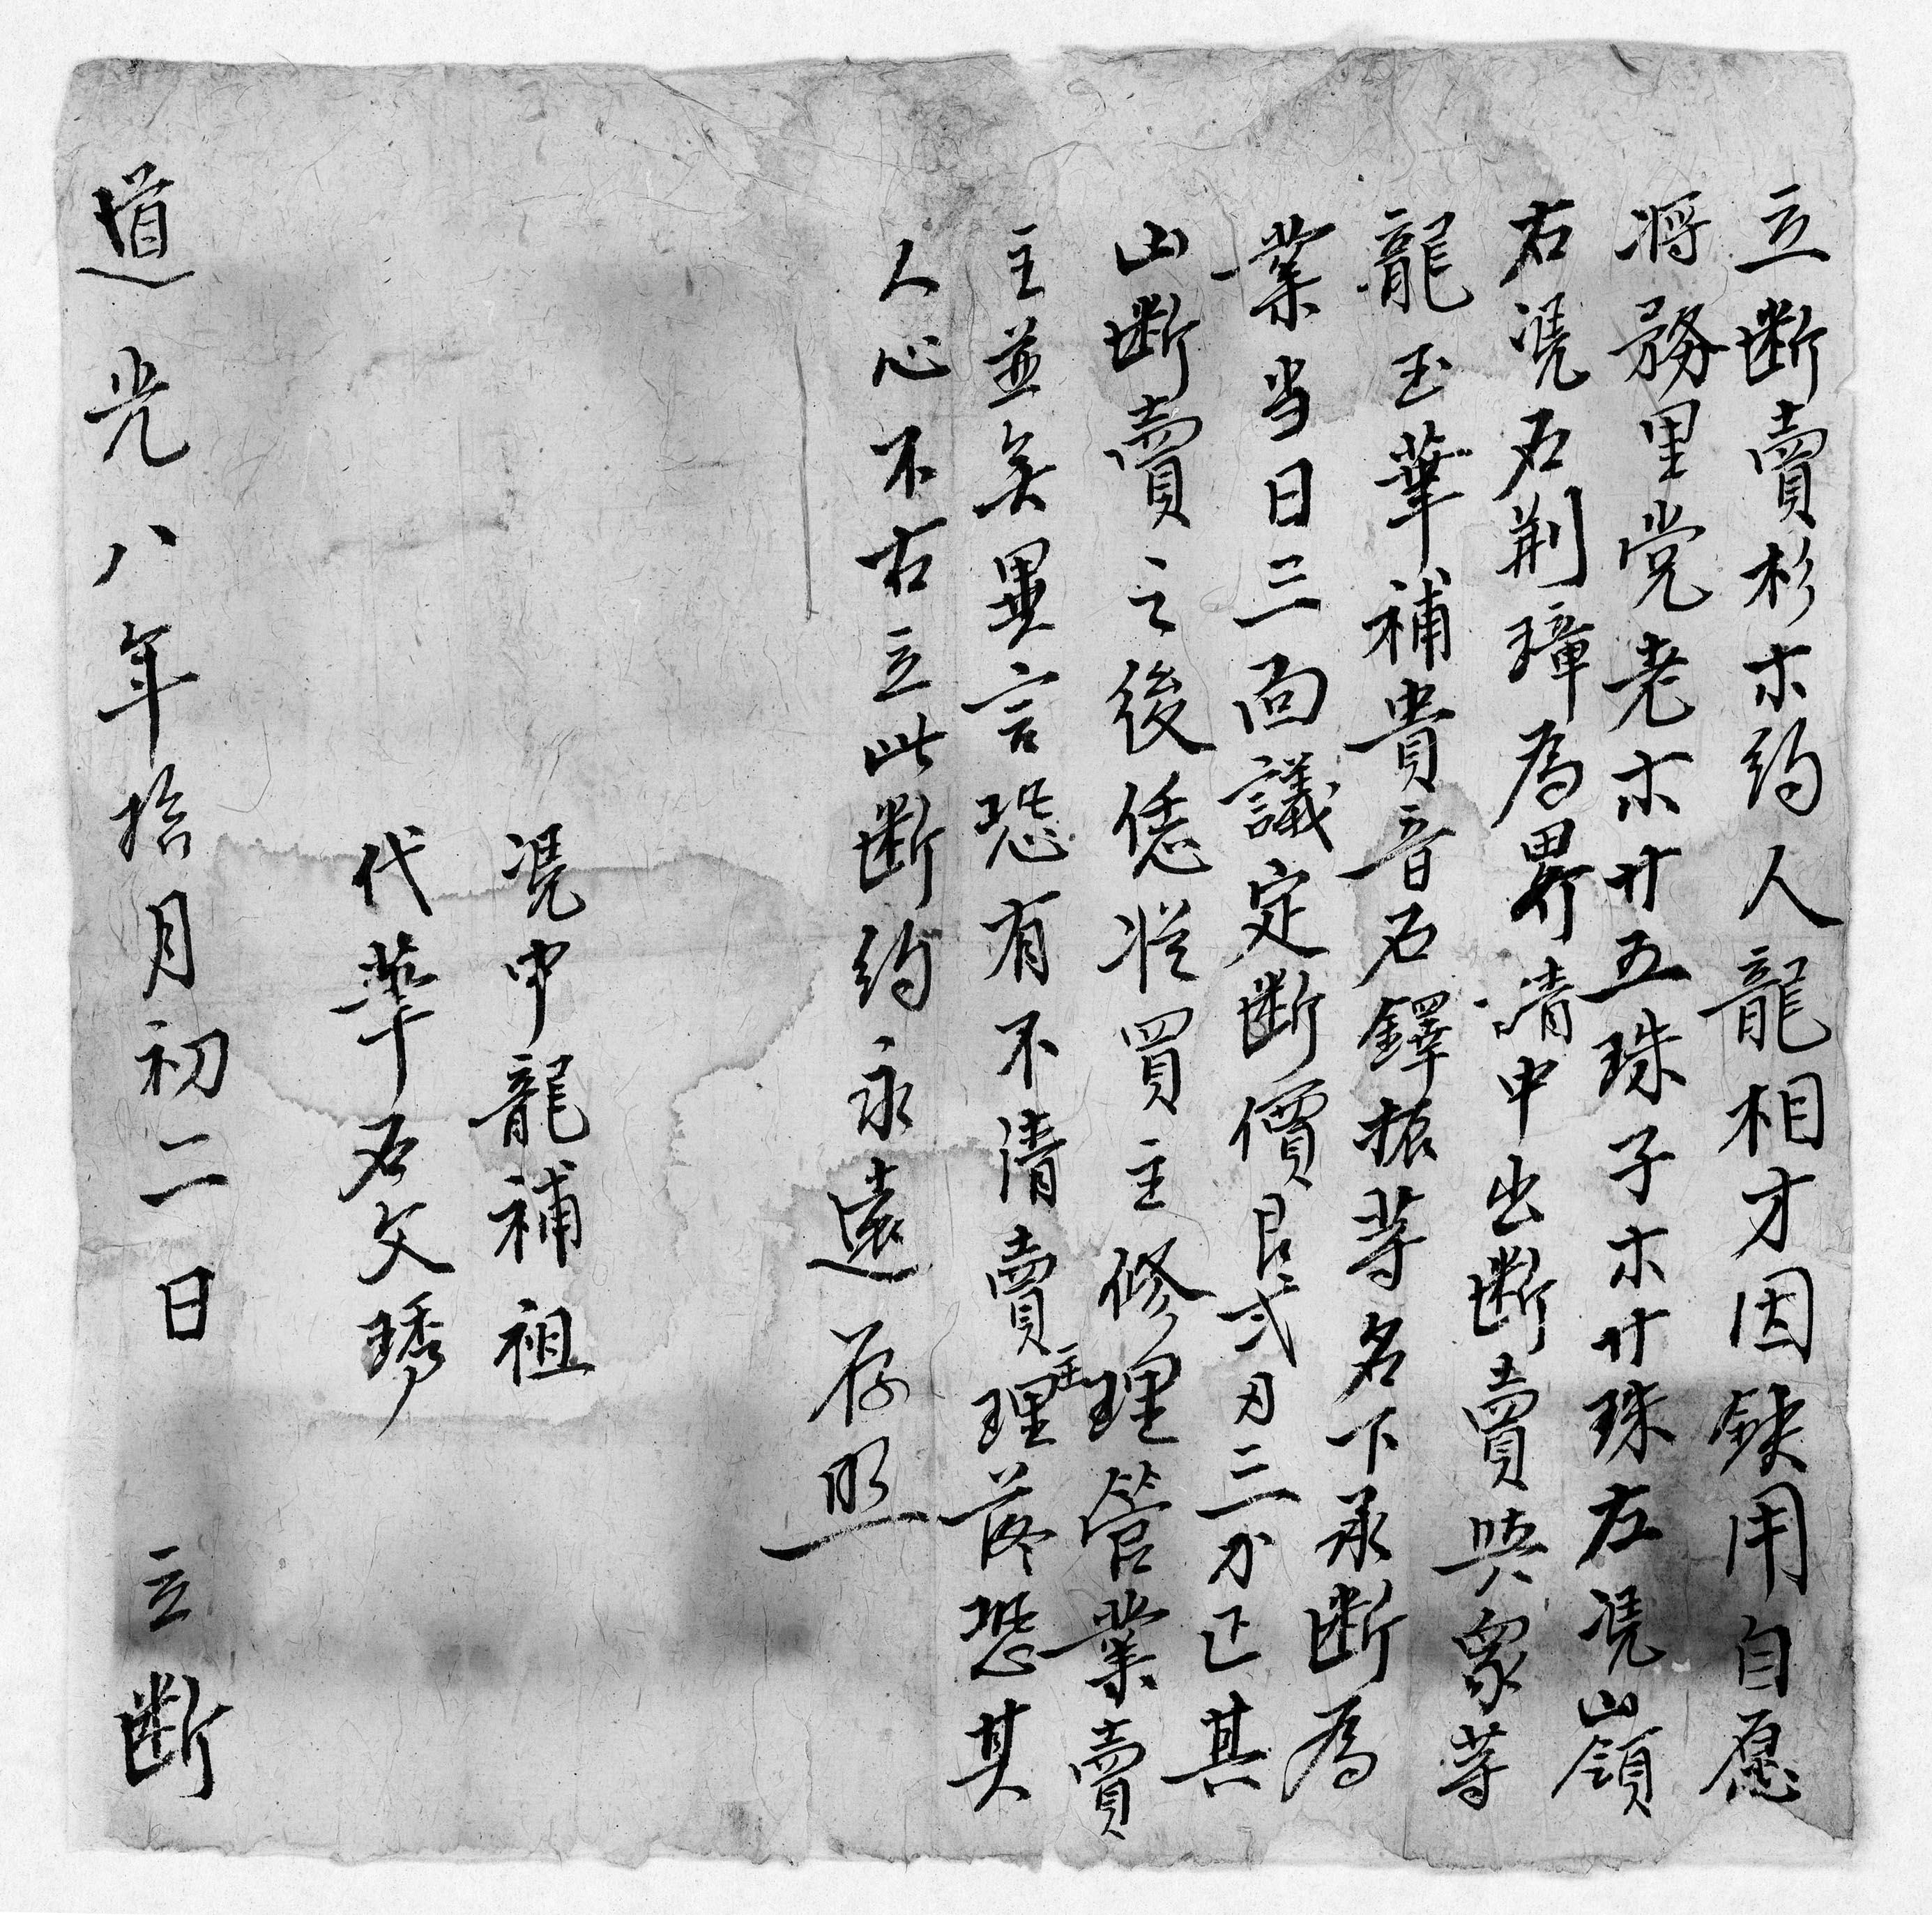 立断賣杉木約人龍相才因缺用自愿
将務里党老木廿五珠子木廿珠左凴山嶺
右凴石荆璋為界清中出断賣與衆等
龍玉華補貴音石鐸振等名下承断為
業当日三面議定断價艮弍刄三分正其
山断賣之後恁從買主修理管業賣
主並矣異言恐有不清賣主理落恐其
人心不古立此断約永遠存照
凴中龍補祖
代筆石文琇
道光八年拾月初二日 立断